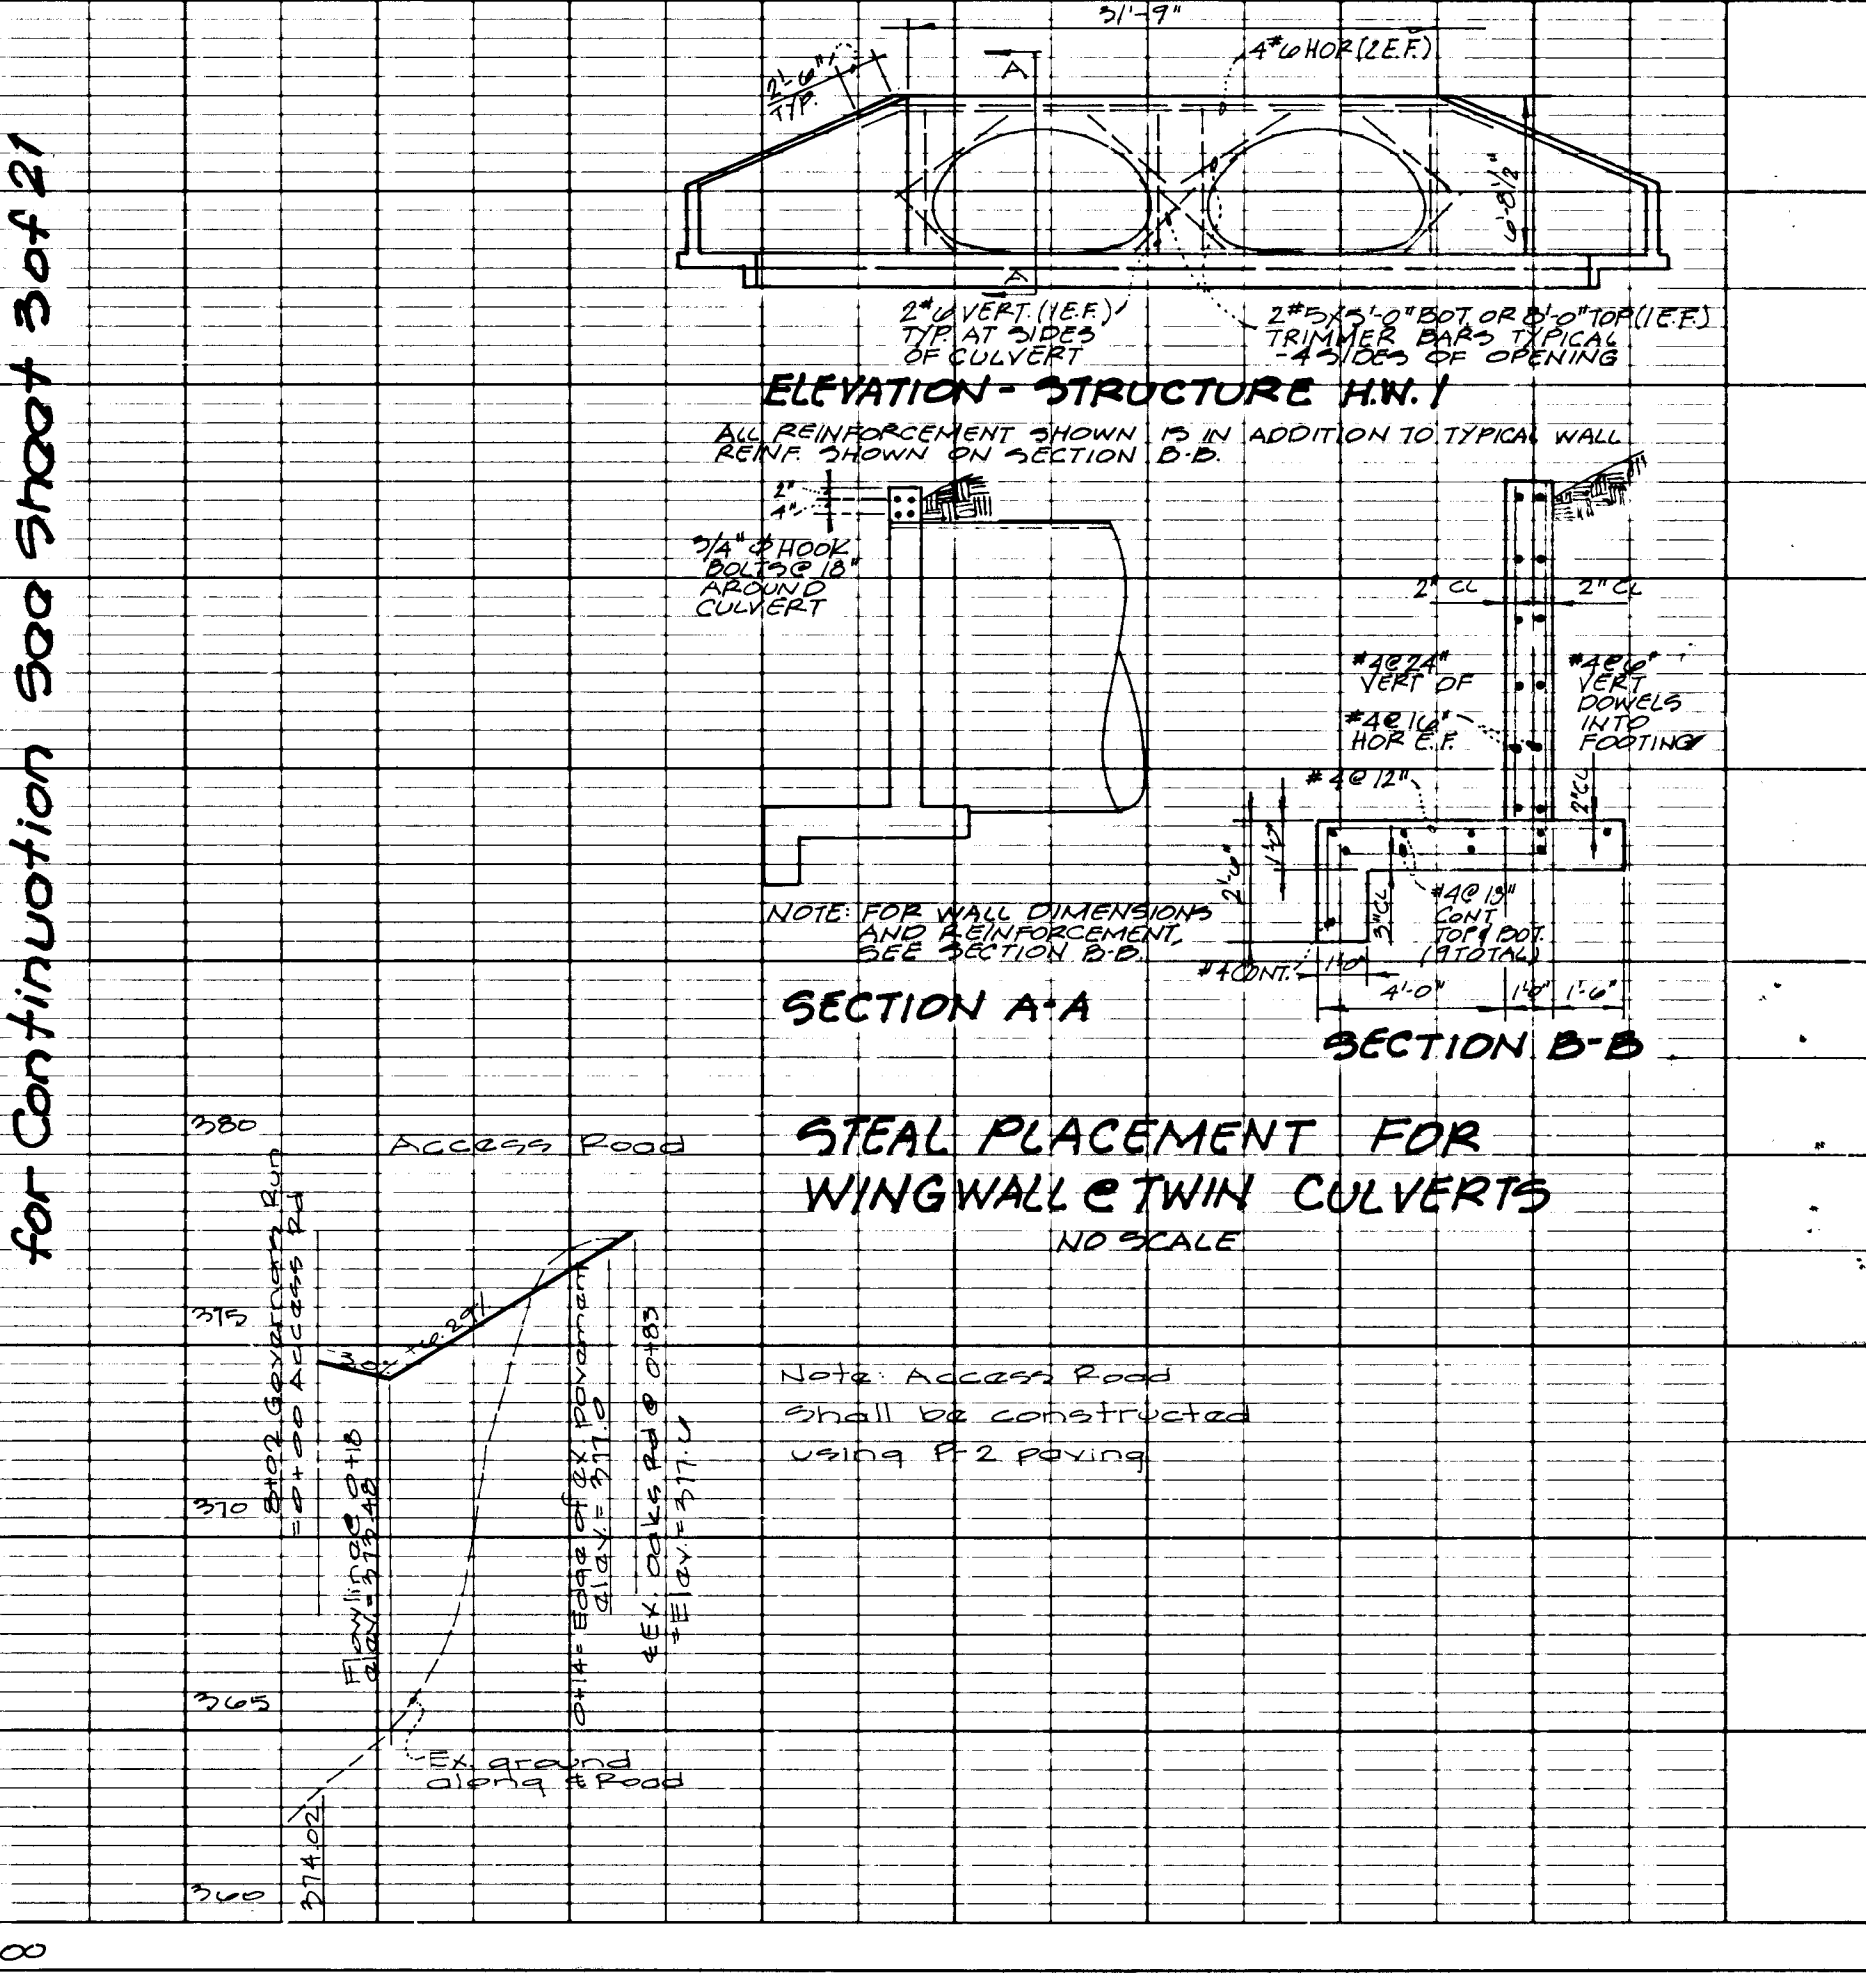 for Continuation See Sheet 3 of 21
31'-9"
2'-6"
TYP.
A
4#6 HOR (2 E.F.)
6'-8 1/2"
A
2#6 VERT. (1 E.F.)
TYP. AT SIDES
OF CULVERT
2#5x5'-0" BOT. OR 8'-0" TOP (1 E.F.)
TRIMMER BARS TYPICAL
-4 SIDES OF OPENING
ELEVATION - STRUCTURE H.W. 1
ALL REINFORCEMENT SHOWN IS IN ADDITION TO TYPICAL WALL
REINF. SHOWN ON SECTION B-B.
2"
4"
3/4" Φ HOOK
BOLTS @ 18"
AROUND
CULVERT
NOTE: FOR WALL DIMENSIONS
AND REINFORCEMENT,
SEE SECTION B-B.
SECTION A-A
2" CL
2" CL
#4@24"
VERT OF
#4@16"
HOR E.F.
#4@6"
VERT
DOWELS
INTO
FOOTING
#4@12"
2" CL
2'-6"
1'-0"
3" CL
#4@18"
CONT
TOP & BOT.
(9 TOTAL)
#4 CONT.
1'-0"
4'-0"
1'-0"
1'-6"
SECTION B-B
STEAL PLACEMENT FOR
WINGWALL @ TWIN CULVERTS
NO SCALE
380
375
370
365
360
Access Road
8+02 Governors Run
= 0+00 Access Rd
+6.29%
Flowline @ 0+18
elev. = 373.48
0+74 = Edge of ex. pavement
elev. = 377.0
℄ Ex. Oaks Rd @ 0+83
= Elev. = 377.6
Ex. ground
along ℄ Road
374.02
Note: Access Road
shall be constructed
using P-2 paving
8